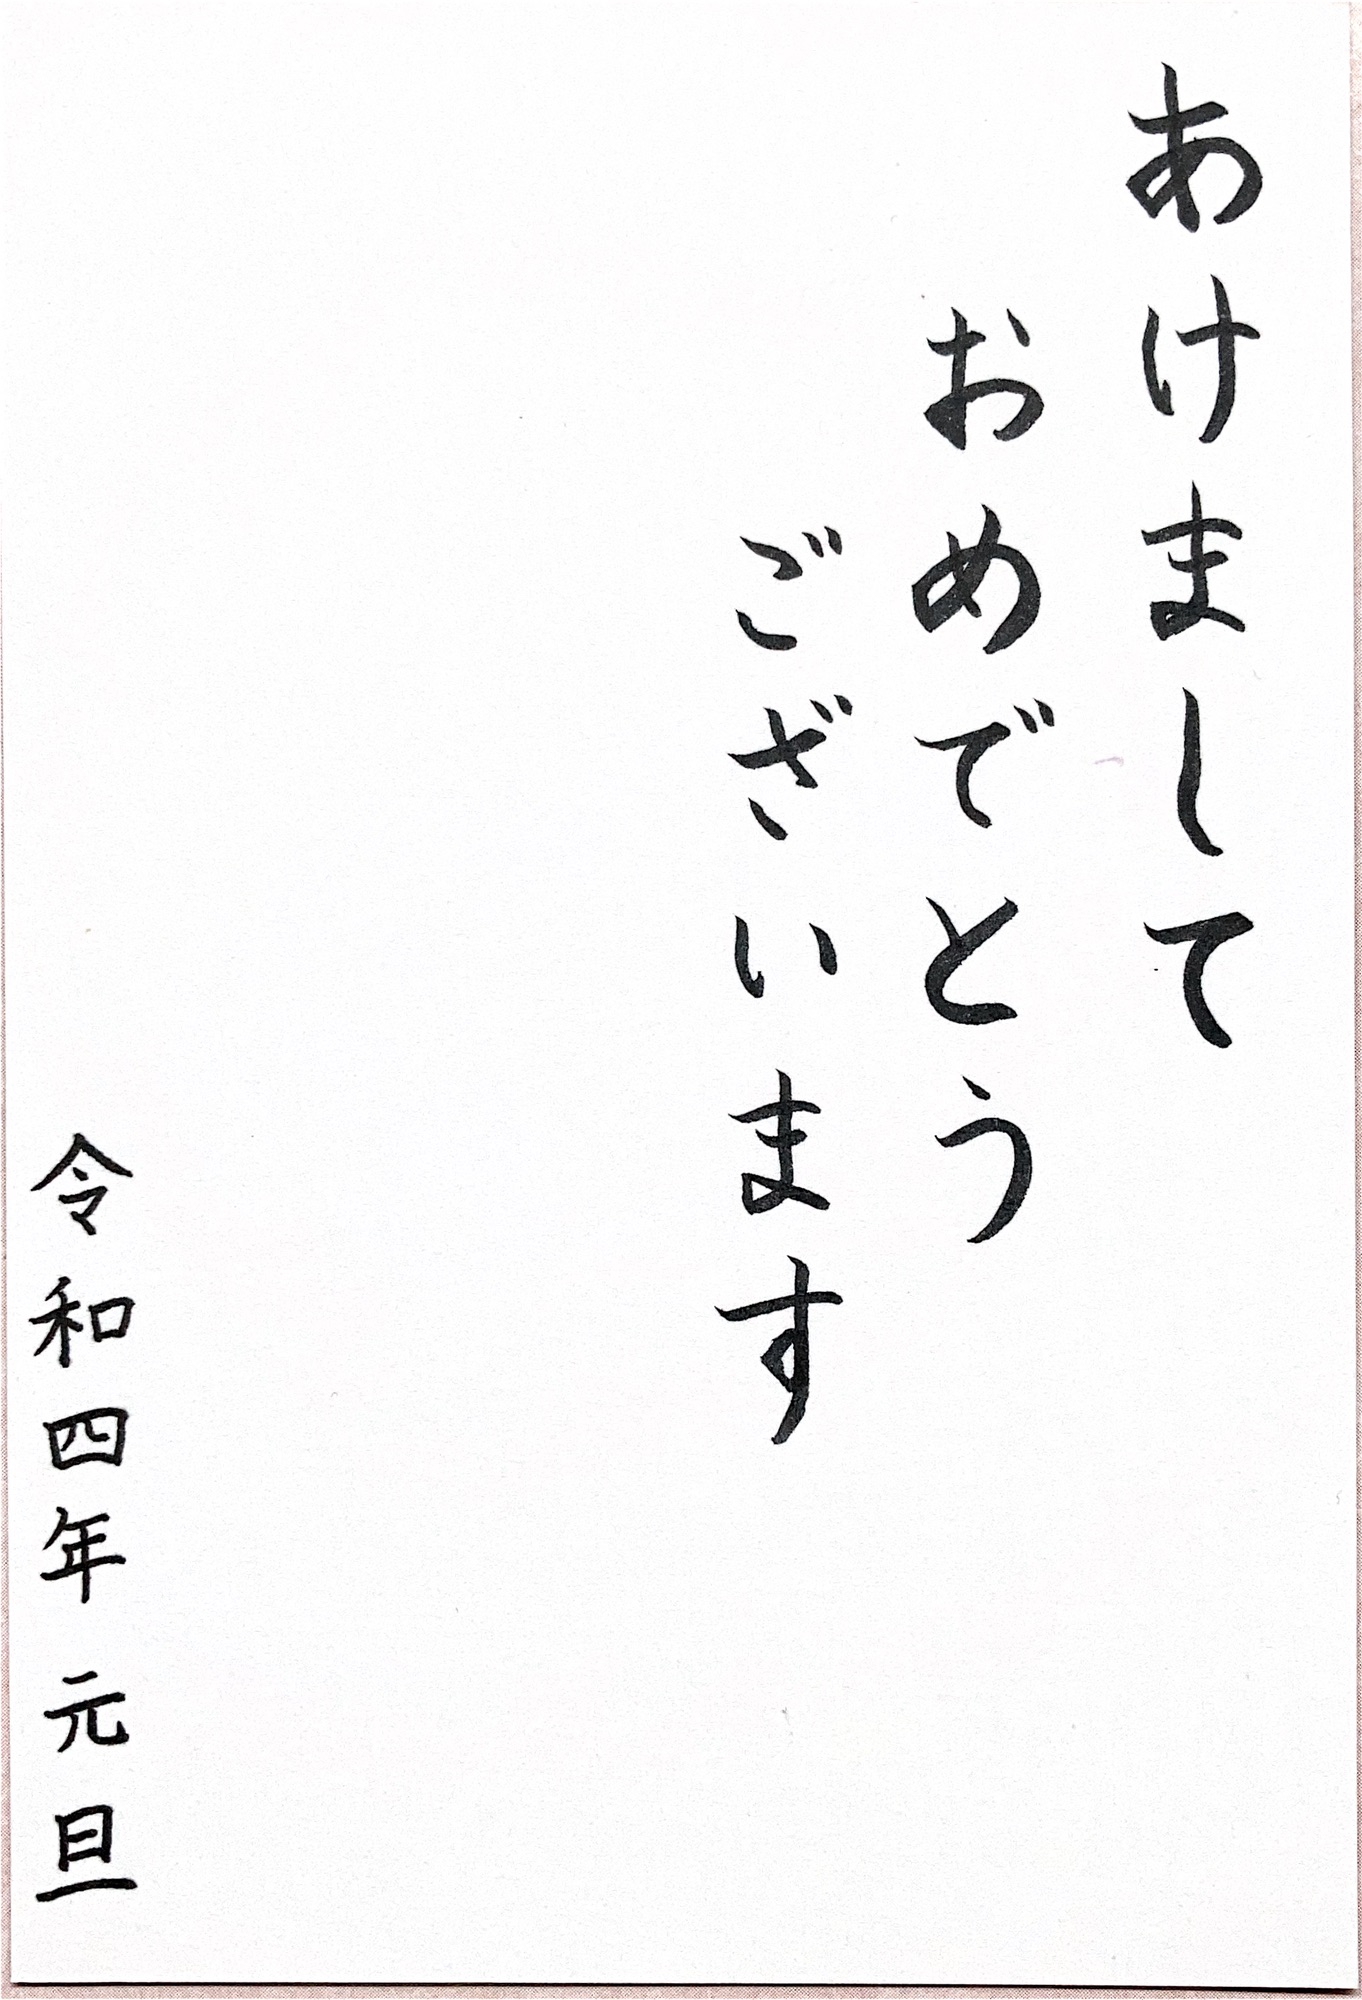 あけまして
おめでとう
ございます
令和四年 元旦